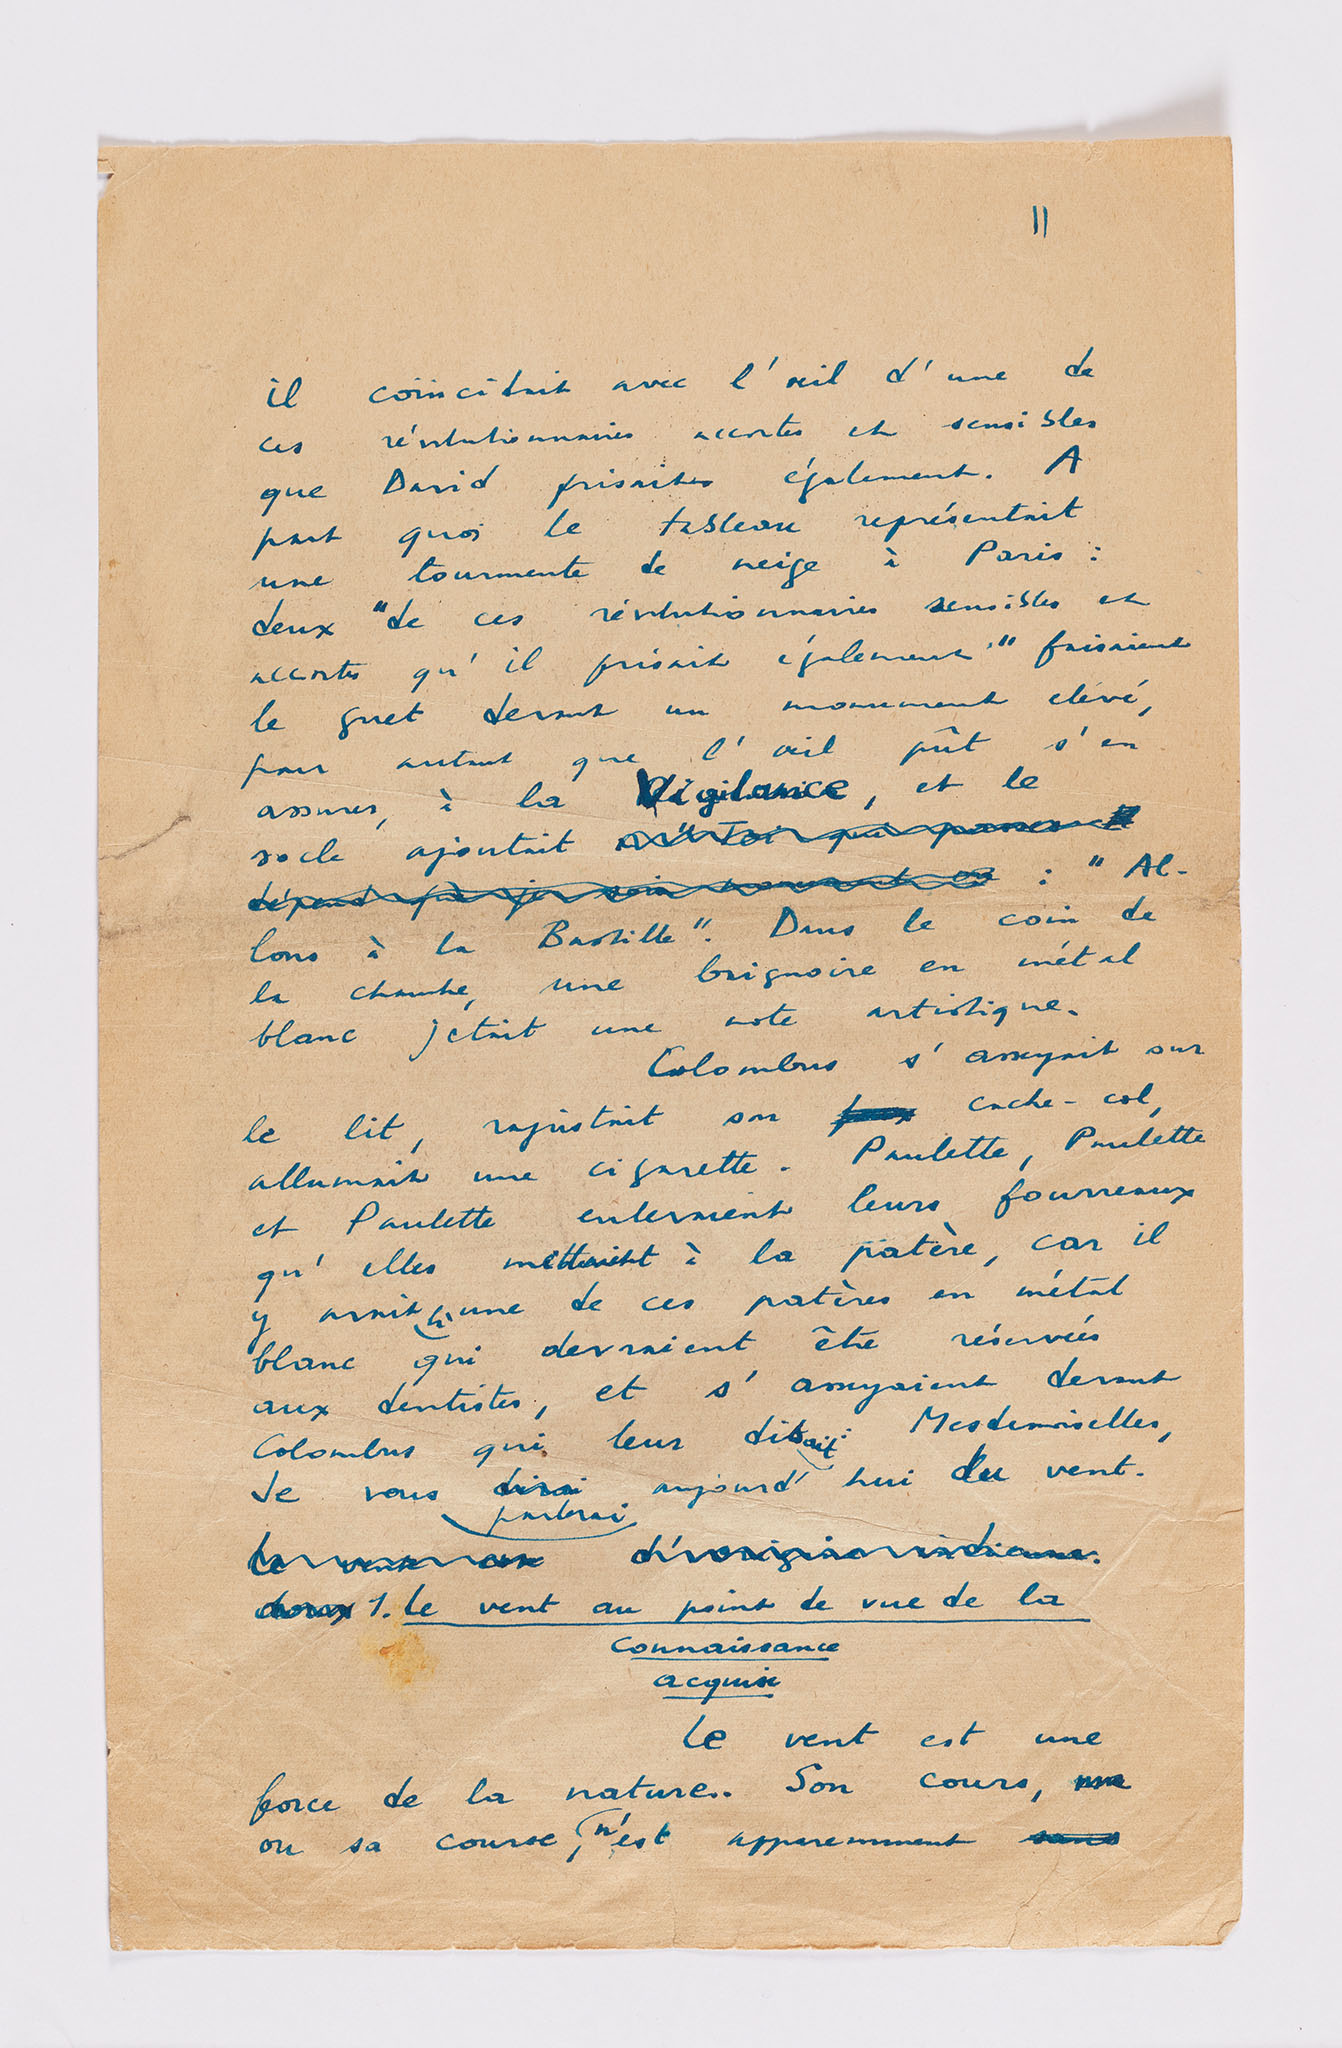 11
il coïncidait avec l'œil d'une de
ces révolutionnaires accortes et sensibles
que David prisait également. A
part quoi le tableau représentait
une tourmente de neige à Paris :
deux "de ces révolutionnaires sensibles et
accortes qu'il prisait également" faisaient
le guet devant un monument élevé,
pour autant que l'œil pût s'en
assurer, à la Vigilance, et le
socle ajoutait "Toi qui passes
dépend que je sois : "Al-
lons à la Bastille". Dans le coin de
la chambre, une baignoire en métal
blanc jetait une note artistique.
Colombus s'asseyait sur
le lit, rajustait son cache-col,
allumait une cigarette. Paulette, Paulette
et Paulette enlevaient leurs fourreaux
qu'elles mettaient à la patère, car il
y avait là une de ces patères en métal
blanc qui devraient être réservées
aux dentistes, et s'asseyaient devant
Colombus qui leur disait : Mesdemoiselles,
Je vous dirai aujourd'hui du vent.
parlerai
Le vent est d'origine indienne.
doux 1. Le vent au point de vue de la
connaissance
acquise
Le vent est une
force de la nature. Son cours,
ou sa course, n'est apparemment sans